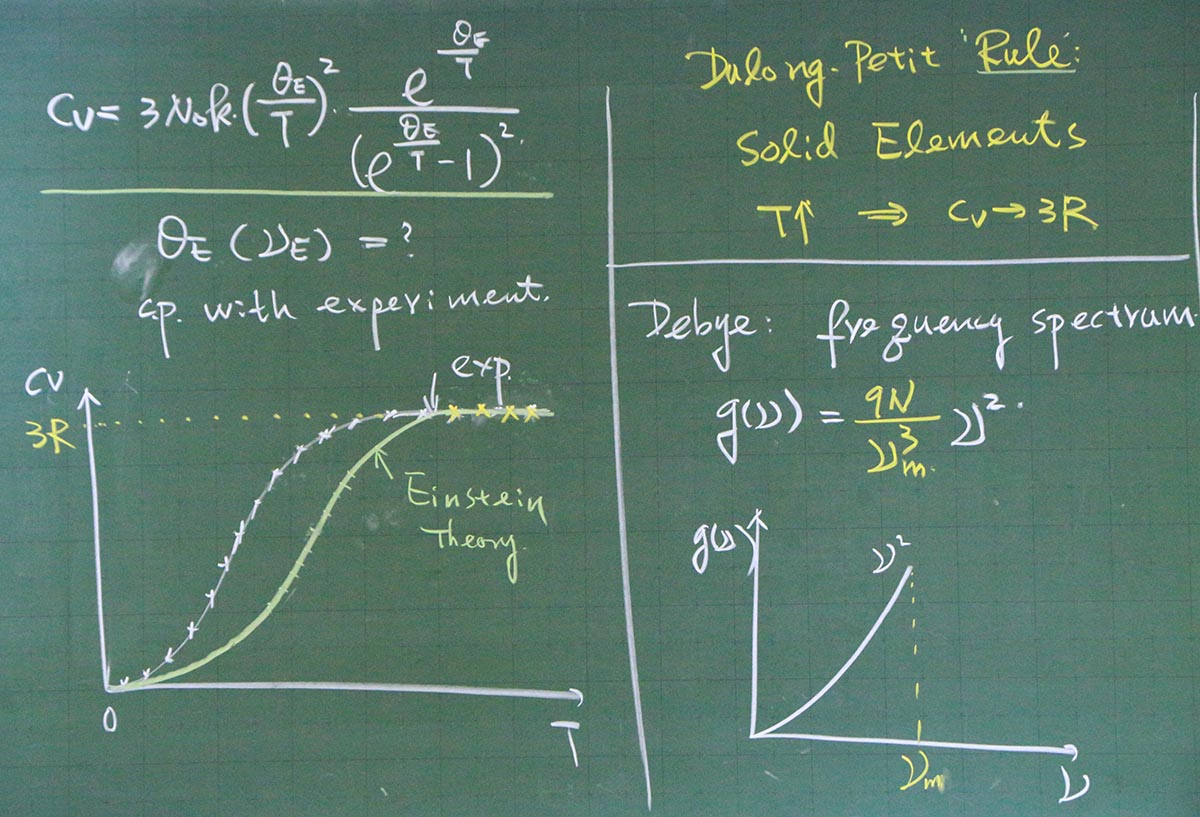 Cv = 3N₀k·(θE/T)²· e^(θE/T) / (e^(θE/T) - 1)².
θE (νE) = ?
cp. with experiment.
Cv
exp.
3R
Einstein
Theory.
0
T
Dulong-Petit "Rule":
Solid Elements
T↑ ⇒ Cv → 3R
Debye: frequency spectrum.
g(ν) = 9N/ν³m. ν².
g(ν)
ν²
νm
ν